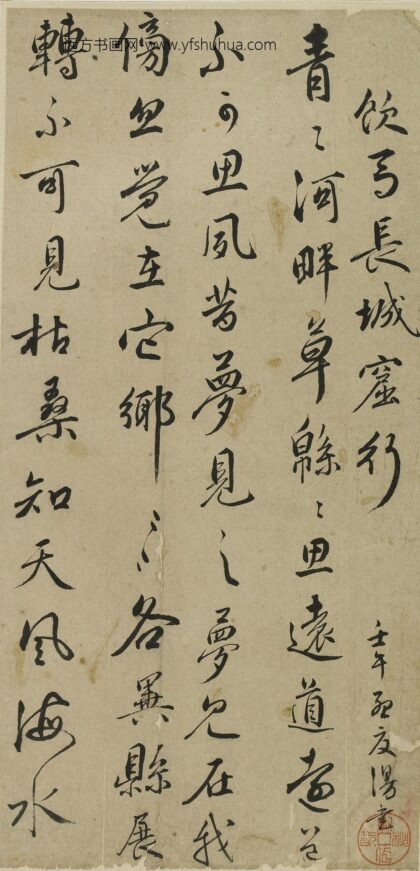 飲馬長城窟行
壬午
青〻河畔草緜〻思遠道遠道
不可思夙昔夢見之夢見在我
傍忽覺在它鄉〻〻各異縣展
轉不可見枯桑知天風海水
方书画网 www.yfshuhua.com